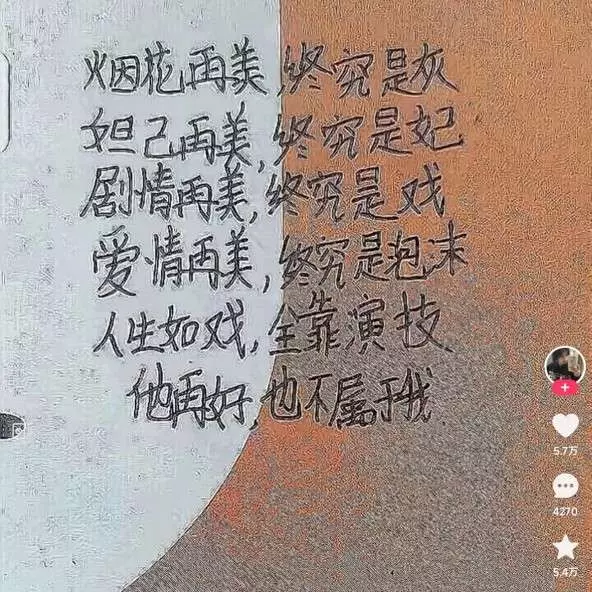 烟花再美,终究是灰
妲己再美,终究是妃
剧情再美,终究是戏
爱情再美,终究是泡沫
人生如戏,全靠演技
他再好,也不属于我
5.7万
4270
5.4万